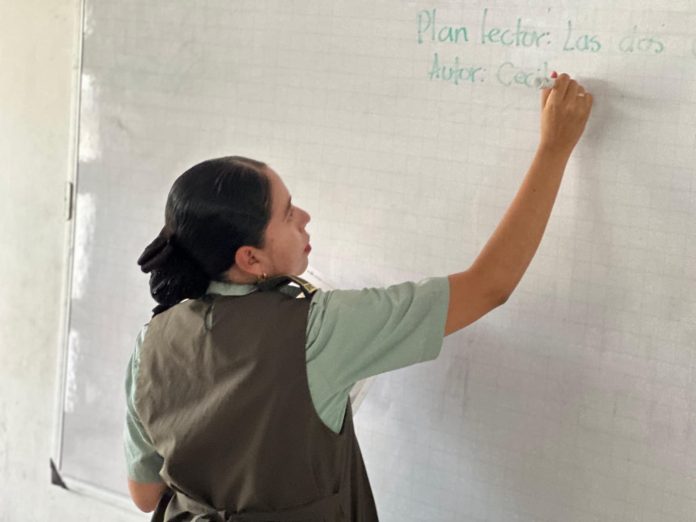 Plan lector: Las dos
Autor: Ceci